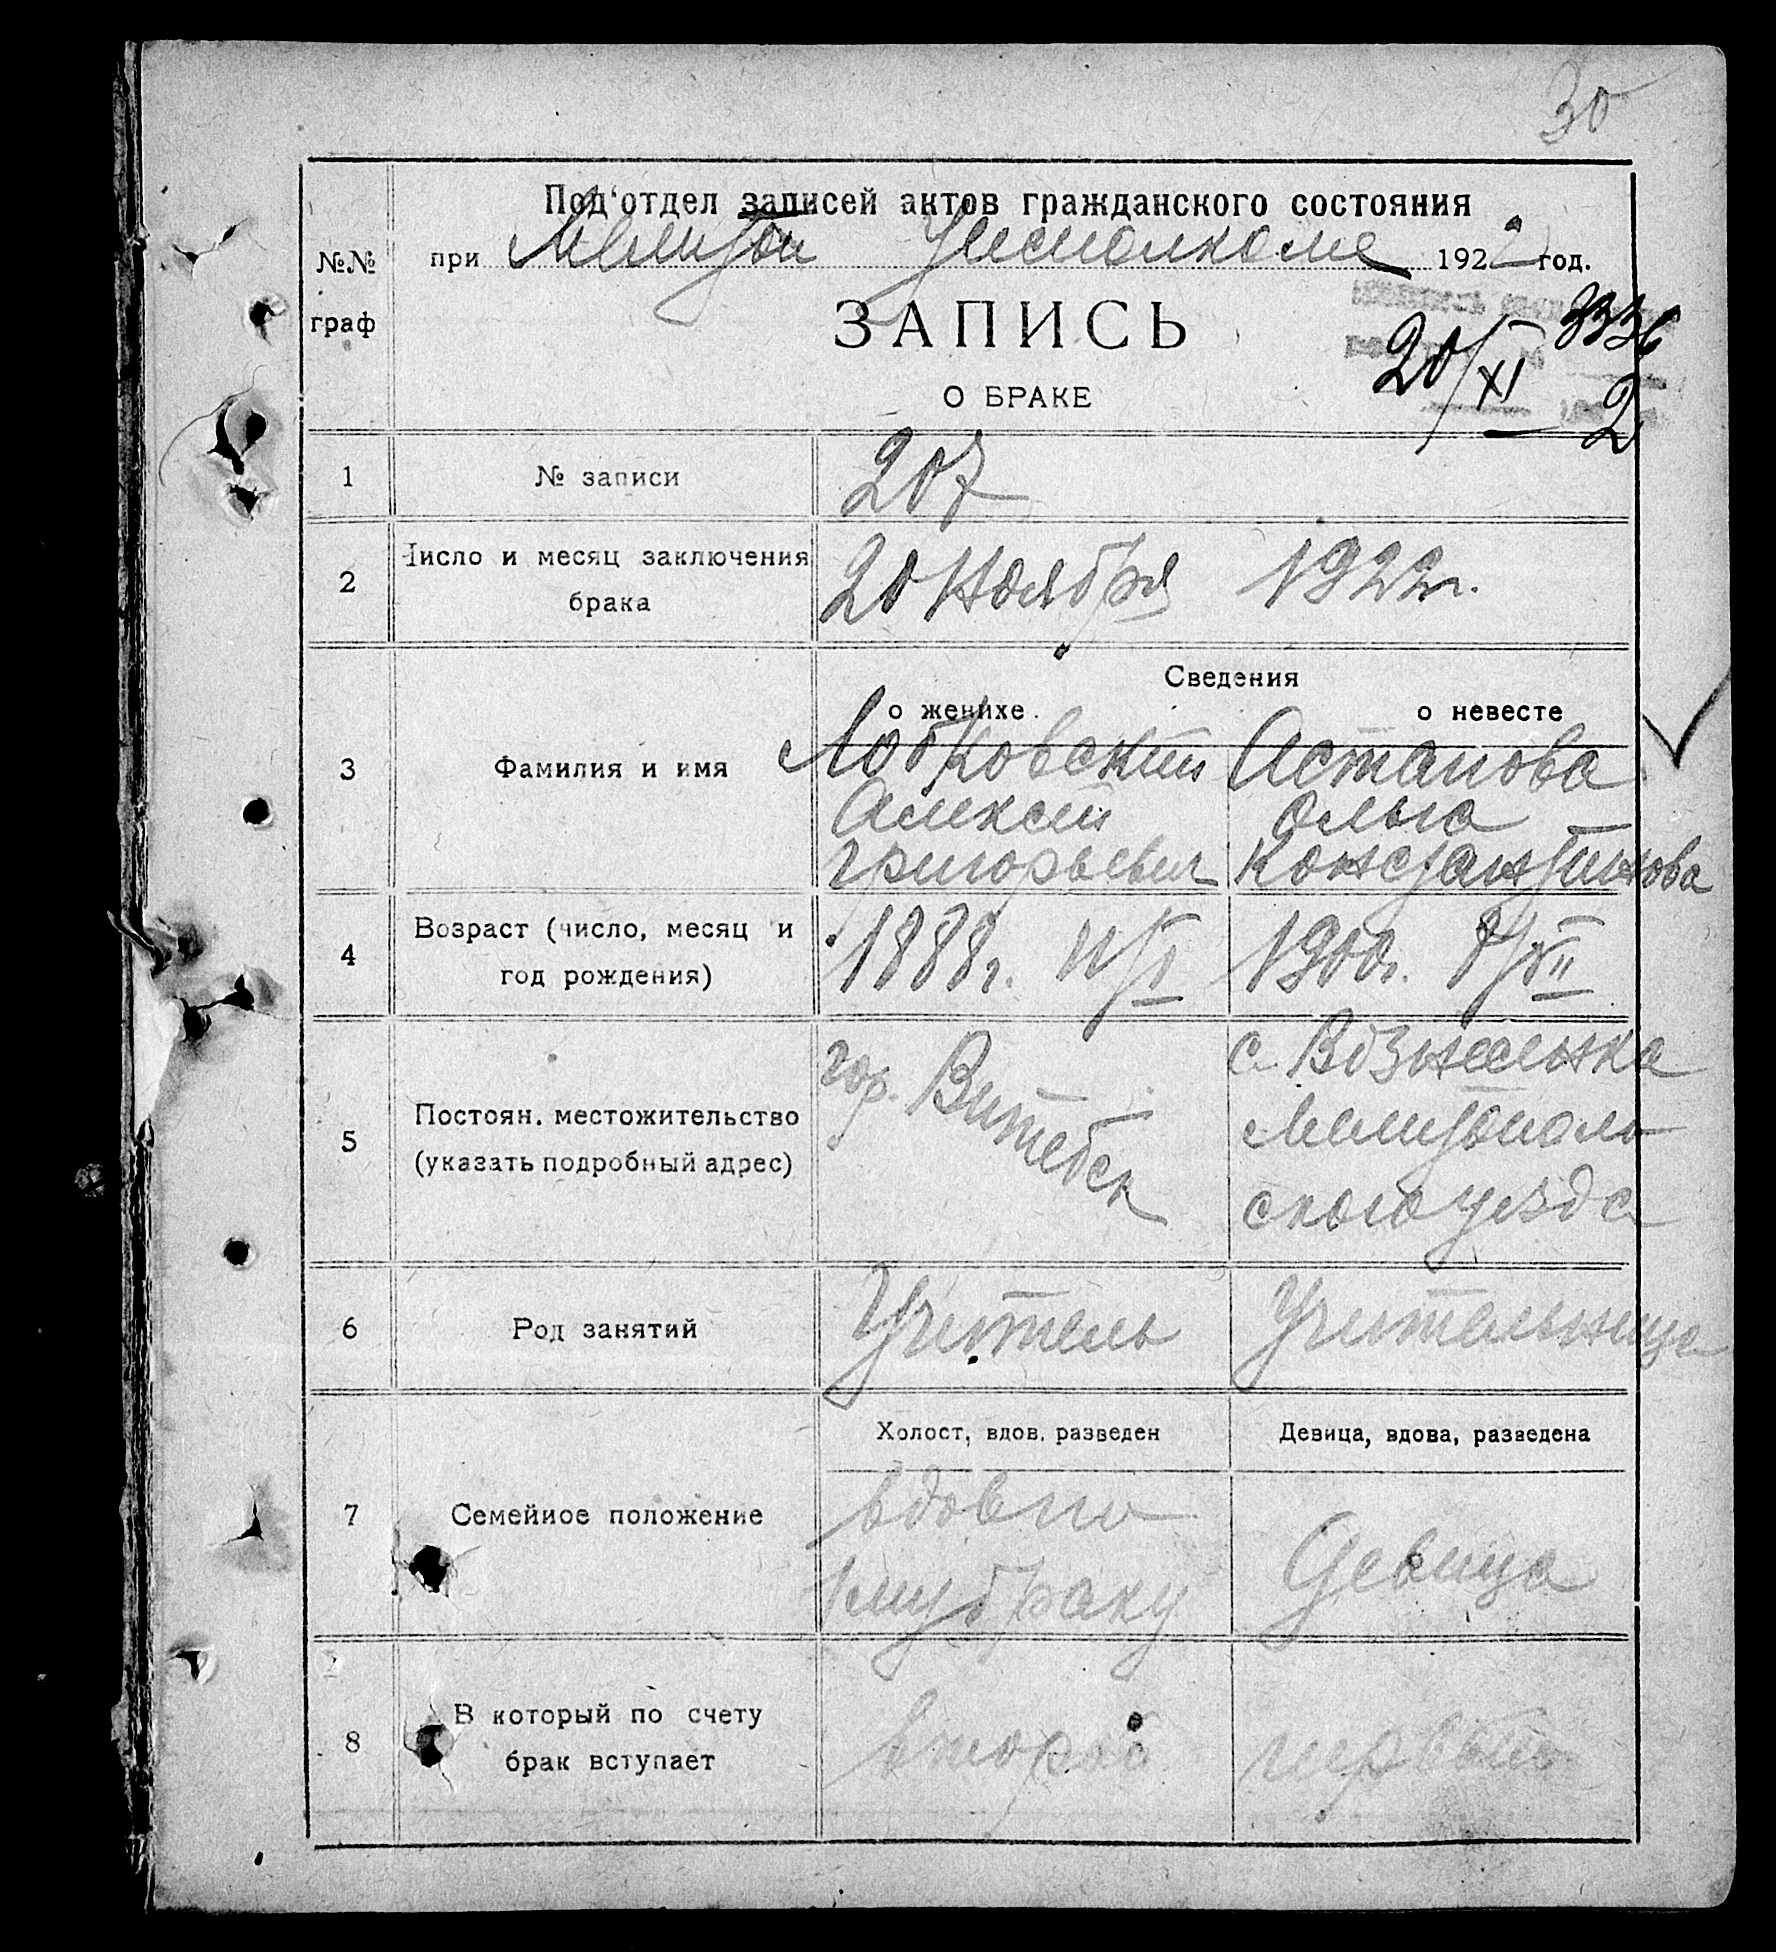 30
Под'отдел записей актов гражданского состояния
№№ при Мелитоп Уисполкоме 1922 год.
граф
ЗАПИСЬ
3336
20/XI 2
О БРАКЕ
1 № записи 207
2 Число и месяц заключения брака 20 Ноября 1922 г.
Сведения
о женихе. о невесте
3 Фамилия и имя Лобковский Астапова
Алексей Ольга
Григорьевич Константинова
4 Возраст (число, месяц и
год рождения) 1888 г. 1900 г.
5 Постоян. местожительство
(указать подробный адрес)
гор. Витебск
с. Вознесенка
Мелитополь
ского уезда
6 Род занятий Учитель Учительница
Холост, вдов, разведен Девица, вдова, разведена
7 Семейное положение вдов по
1му браку Девица
8 В который по счету
брак вступает второй первый